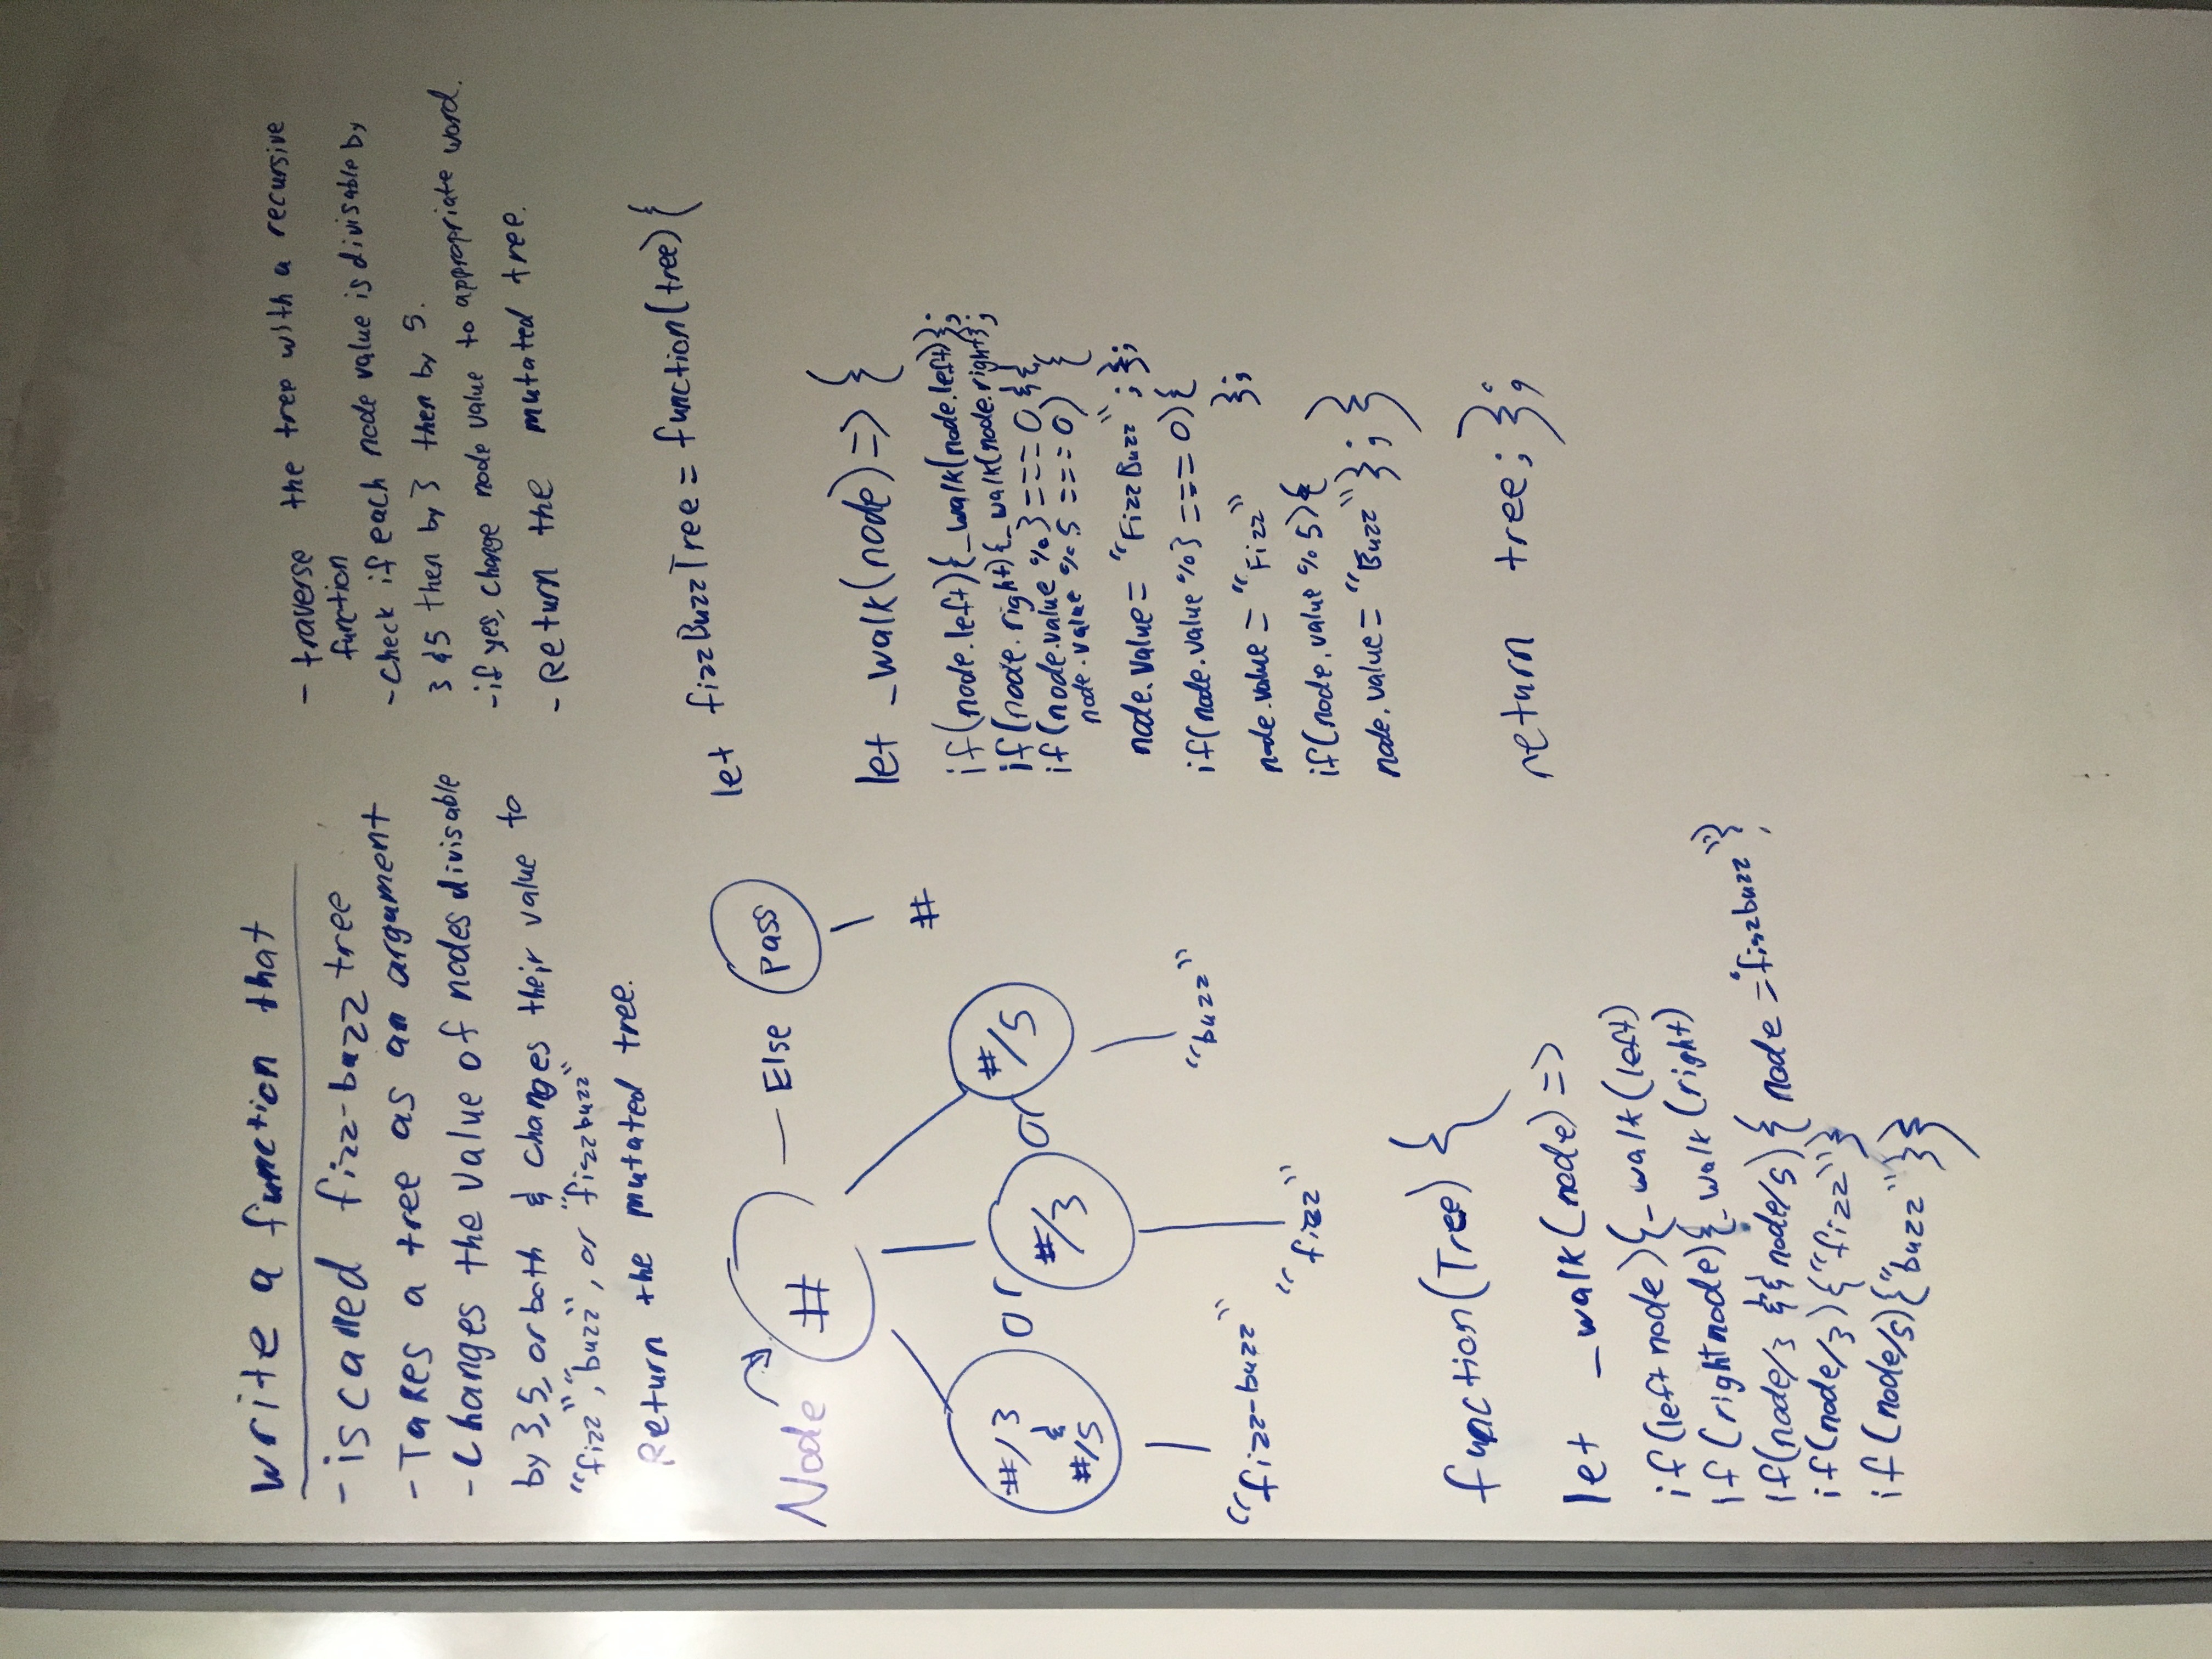 write a function that
- is called fizz-buzz tree
- Takes a tree as an argument
- Changes the value of nodes divisable
by 3, 5, or both & changes their value to
"fizz", "buzz", or "fizzbuzz"
Return the mutated tree.
Node
#
Else
pass
#
#/3
&
#/5
or
#/3
or
#/5
"fizz-buzz"
"fizz"
"buzz"
function(Tree) {
let _walk(node) =>
if(left node){_walk(left)
if(rightnode){_walk(right)
if(node/3 && node/5) { node = "fizzbuzz"}
if(node/3){"fizz"}
if(node/5){"buzz"}}
- traverse the tree with a recursive
function
- Check if each node value is divisable by
3 & 5 then by 3 then by 5.
- if yes, change node value to appropriate word.
- Return the mutated tree.
let fizzBuzzTree = function(tree){
let _walk(node) => {
if(node.left){_walk(node.left)};
if(node.right){_walk(node.right};
if(node.value % 3 === 0 &&
node.value % 5 === 0) {
node.value = "FizzBuzz"; };
if(node.value % 3 === 0){
node.value = "Fizz" };
if(node.value % 5){
node.value = "Buzz"}; }
return tree; };